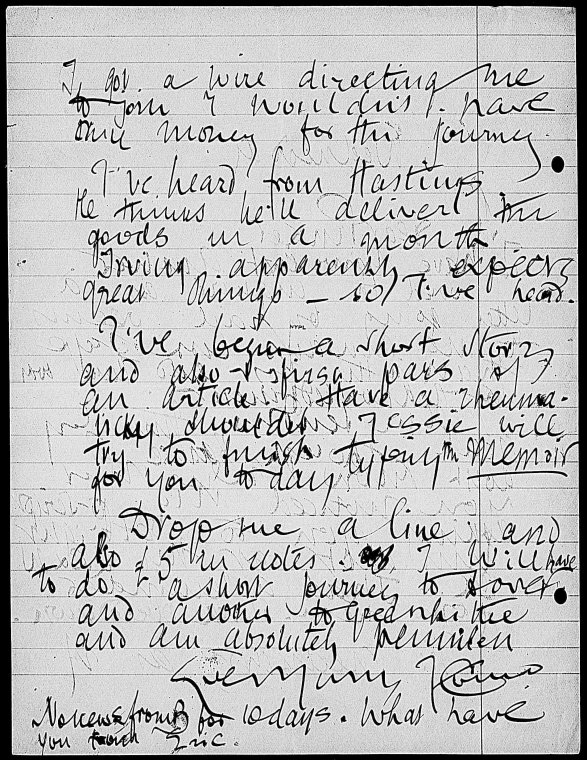 I got a wire directing me
to join I wouldn't have
any money for the journey.
I've heard from Hastings
He thinks he'll deliver the
goods in a month.
Irving apparently expects
great things — so I've heard.
I've begun a short story
and also first pars of
an article. I have a rheuma-
ticky shoulder. Jessie will
try to finish typing the Memoir
for you to day
Drop me a line and
also £5 in notes. I will have
to do a short journey to Dover
and another to Greenhithe
and am absolutely penniless
Ever Yours
No news from B for 10 days. What have
you from Eric.